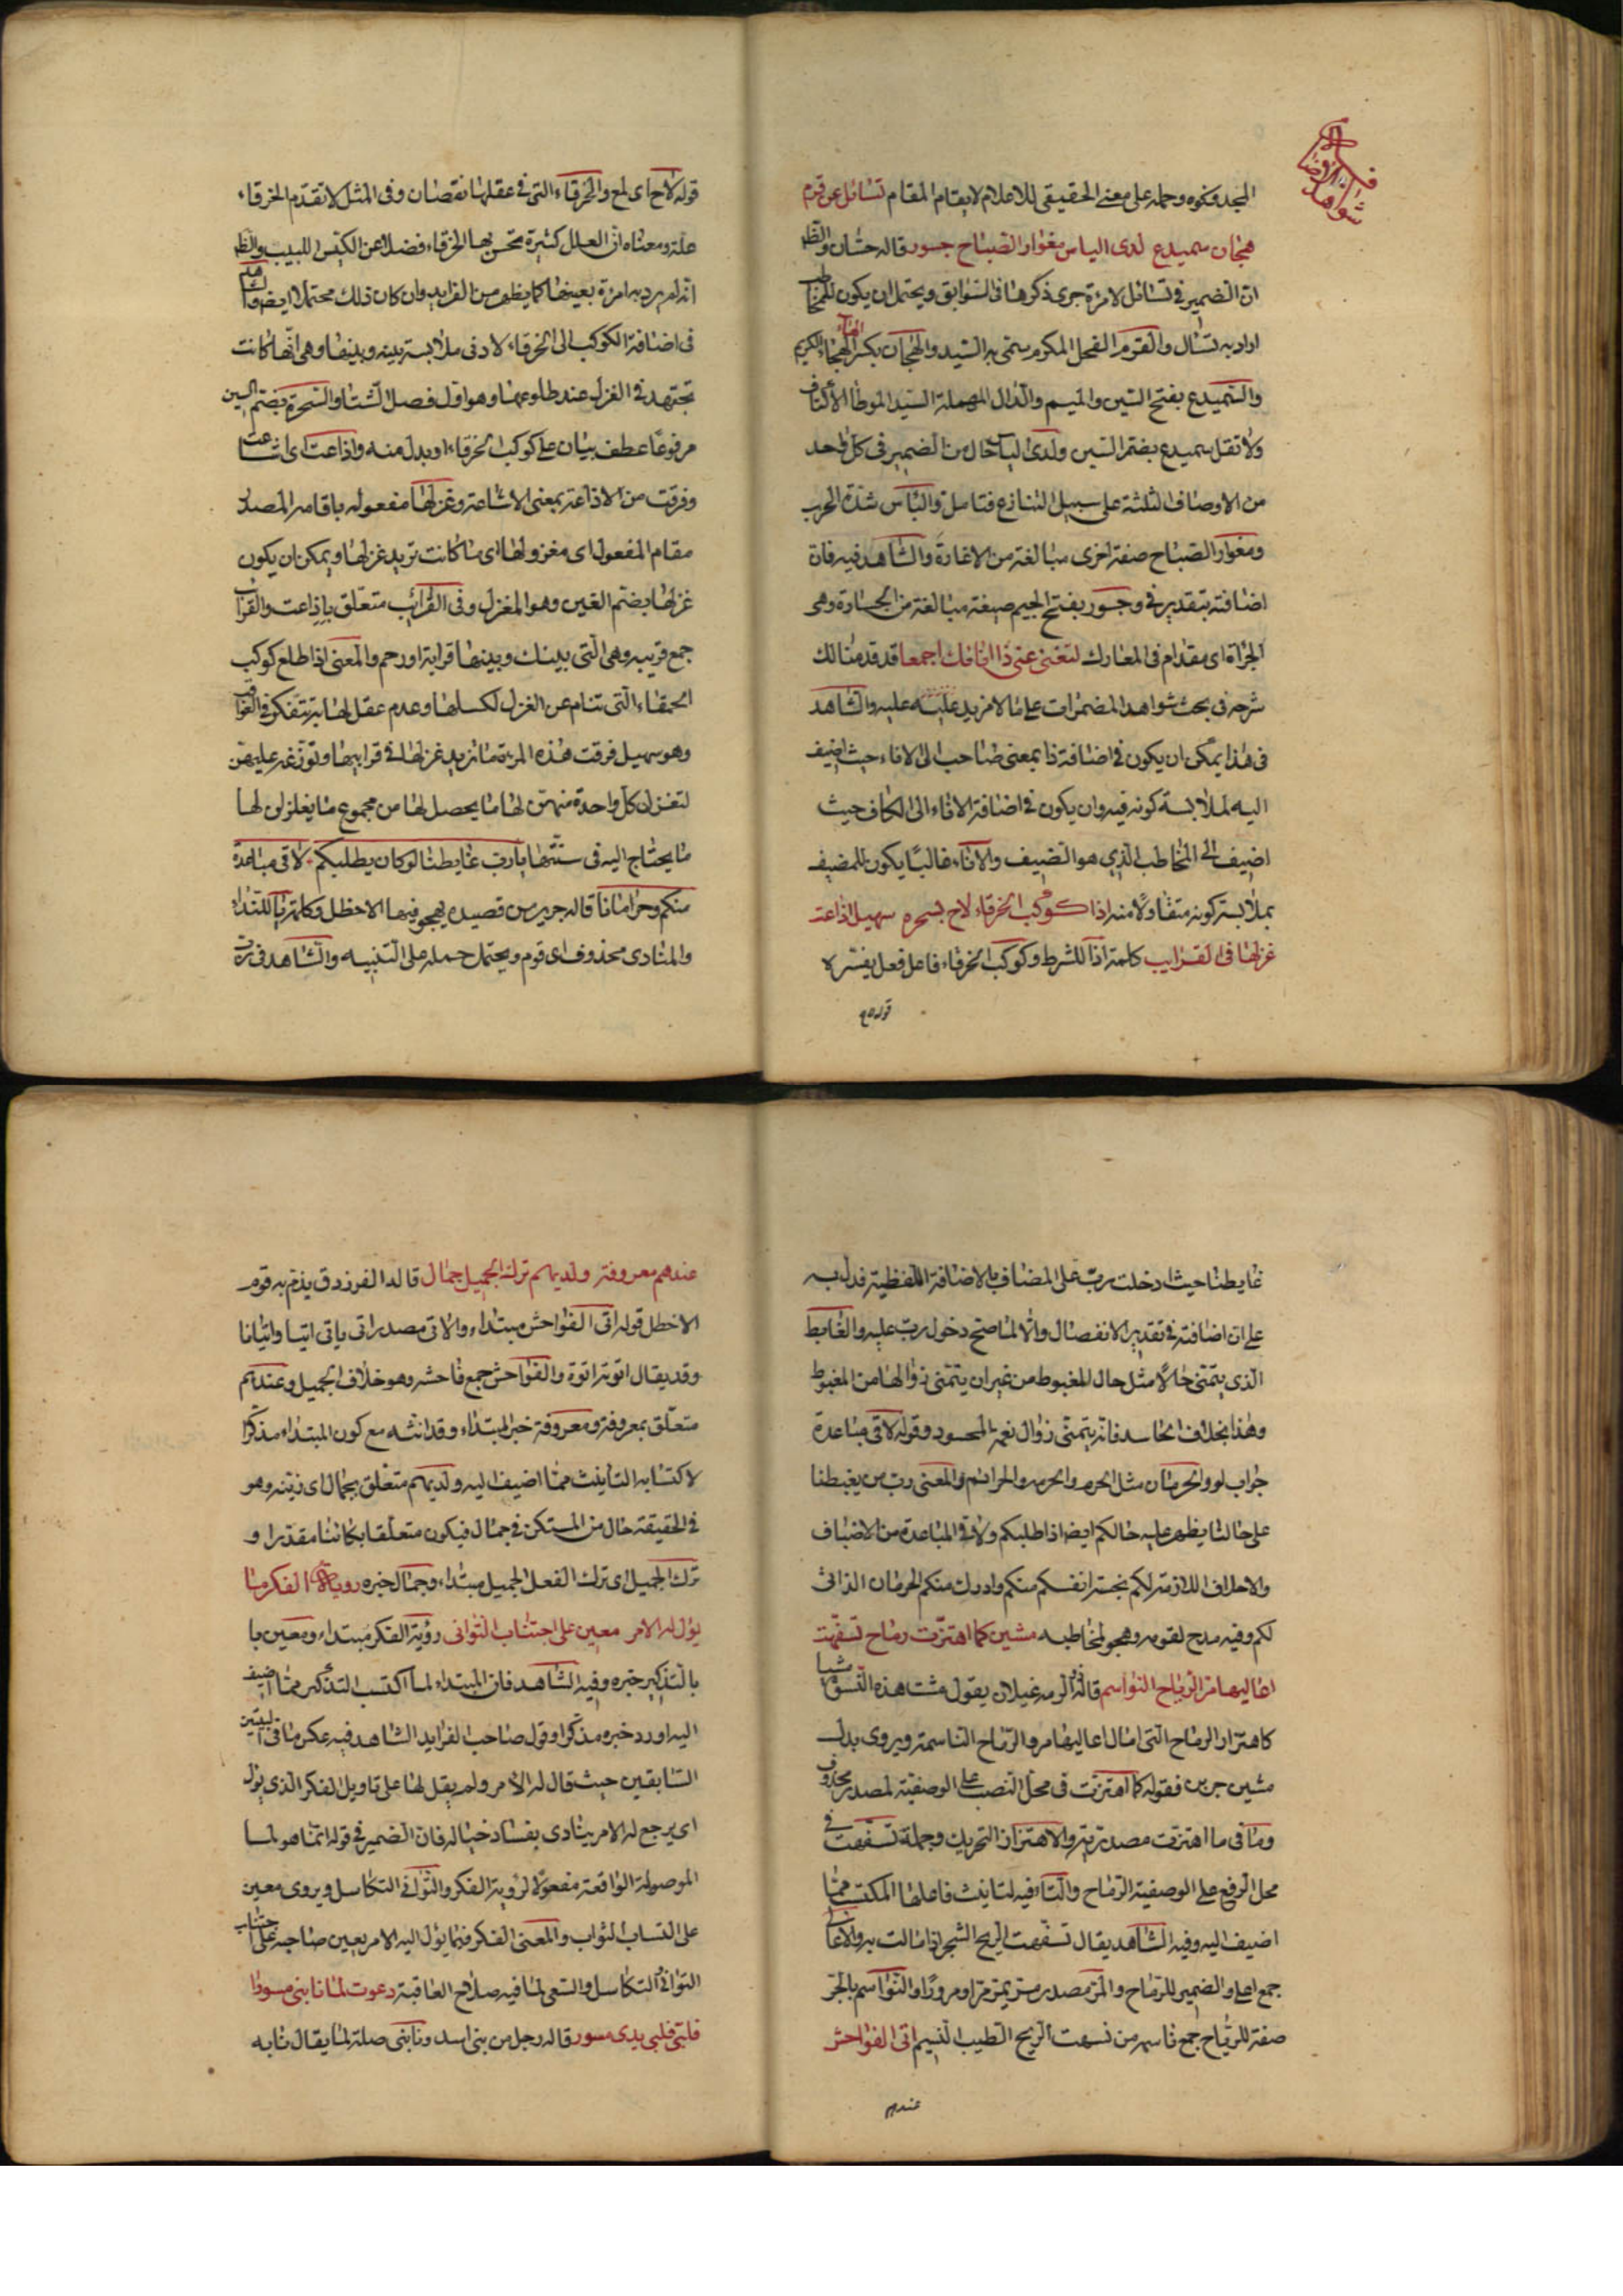 في الاضافة
شواهد
المجد ونحوه وحمله على معنى الحقيقي للاعلام لا بمقام المقام تسائل عن قرم
هجان سميدع لدى الباس مغوار الصباح جسور قاله حسّان والظ
ان الضمير في تسائل لامرئة جرى ذكرها في السوابق ويحتمل ان يكون للمخاطب
اراد به تسأل والقوم الفحل المكرم سمّى به السّيد والهجان بكسر الهاء الكريم
والسّميدع بفتح السّين والميم والدّال المهملة السّيد الموطّا الأكناف
ولا تقل سميدع بضمّ السّين ولدى الباس حال من الضمير في كل واحد
من الاوصاف الثلثة على سبيل التنازع فتامل والباس شدّة الحرب
ومغوار الصّباح صفة اخرى مبالغة من الاغارة والشّاهد فيه فان
اضافته بتقدير في وجسور بفتح الجيم صيغة مبالغة من الجسارة وهى
الجرأة اى مقدام في المعارك لتغنى عنى ذا انائك اجمعا قد قدمنا لك
شرحه في بحث شواهد المضمرات على ما لا مزيد عليه والشّاهد
في هذا يمكن ان يكون في اضافة ذا بمعنى صاحب الى الاناء حيث اضيف
اليه لملابسة كونه فيه وان يكون في اضافة الاناء الى الكاف حيث
اضيف الى المخاطب الّذي هو الضيف والاناء غالبًا يكون للمضيف
بملابسة كونه متناولا منه اذا كوكب الخرقاء لاح بسحرة سهيل اذاعت
غزلها في القرايب كلمة اذا للشرط وكوكب الخرقاء فاعل فعل يفسّره
قوله لاح
قوله لاح اى لمع والخرقاء التى في عقلها نقصان وفى المثل لا تقدّم الخرقاء
علة ومعناه انّ العلل كثيرة تحسن بها الخرقاء فضلا عن الكيّس اللبيب والظ
انه لم يرد به امرئة بعينها كما يظهر من الفرايد وان كان ذلك محتملا ايضا
في اضافة الكوكب الى الخرقاء لادنى ملابسة بينه وبينها وهى انّها كانت
تجتهد في الغزل عند طلوعها وهو اوّل فصل الشتاء والسّحرة بضمّ السين
مرفوعًا عطف بيان على كوكب الخرقاء او بدل منه واذاعت اى اشاعت
وفرقت من الاذاعة بمعنى الاشاعة وغزلها مفعوله باقامة المصدر
مقام المفعول اى مغزولها اى ما كانت تريد غزلها ويمكن ان يكون
غزلها بضمّ الغين وهو المغزل وفى القرائب متعلّق باذاعت والقرائب
جمع قريبه وهى الّتى بينك وبينها قرابة او رحم والمعنى اذا طلع كوكب
الحمقاء الّتى تنام عن الغزل لكسلها وعدم عقل لها
وهو سهيل فرقت هذه المرئة ما تريد غزلها في قرايبها وتوزّعه عليهنّ
لتغزل كلّ واحدة منهنّ لها ما يحصل لها من مجموع ما يغلزلن لها
ما يحتاج اليه في سنتها يا ربّ غابطنا لو كان يطلبكم لاقى مباعدة
منكم وحرمانا قاله جرير من قصيدة يهجو فيها الاخطل وكلمة يا للنداء
والمنادى محذوف اى قوم ويحتمل حمله على التنبيه والشّاهد في
غابطنا حيث ادخلت ربّ على المضاف بالاضافة اللفظية فدل به
على ان اضافته في تقدير الانفصال والّا لما صحّ دخول ربّ عليه والغابط
الّذي يتمنّى حالًا مثل حال المغبوط من غير ان يتمنّى زوالها من المغبوط
وهذا بخلاف الحاسد فانّه يتمنّى زوال نعمة المحسود وقوله لاقى مباعدة
جواب لو والحرمان مثل الحرم والحرمه والحرائم والمعنى ربّ من يغبطنا
على حالنا يظهر عليه حالكم ايضا اذا طلبكم ولاقى المباعدة من الاضياف
والاطراف اللازمة لكم بخسة انفسكم منكم وادرك منكم الحرمان الذاتى
لكم وفيه مدح لقومه وهجو لمخاطبه مشين كما اهتزّت رماح تسفّهت
اعاليها مرّ الرياح النواسم قاله ذو الرمه غيلان يقول مشت هذه النّسوة مشيا
كاهتزاز الرماح الّتى امال اعاليها مرور الرّياح الناسمة ويروى بدل
مشين جرين فقوله كما اهتزت في محلّ النّصب على الوصفيّة لمصدر محذوف
وما في ما اهتزت مصدريّة والاهتزاز التحريك وجملة تسفّهت في
محلّ الرّفع على الوصفيّة الرّماح والتاء فيه لتانيث فاعلها المكتسب ممّا
اضيف اليه وفيه الشّاهد يقال تسفّهت الرّيح الشجر اذا مالت به والاعالى
جمع اعلى والضمير للرّماح والمرّ مصدر مرّ يمرّ مرّا ومرورًا والنّواسم بالجرّ
صفة للرّياح جمع ناسم من نسمت الرّيح الطيب النّسيم اتى الفواحش
عندهم
عندهم معروفة ولديهم ترك الجميل جمال قاله الفرزدق يذمّ به قوم
الاخطل قوله اتى الفواحش مبتداء والاتى مصدر اتى ياتى اتيا واتيانا
وقد يقال اتوته اتوة والفواحش جمع فاحشة وهو خلاف الجميل وعندهم
متعلّق بمعروفة ومعروفة خبر المبتداء وقد انّثه مع كون المبتداء مذكّرا
لاكتسابه التانيث ممّا اضيف اليه ولديهم متعّلق بجمال اى زينة وهو
في الحقيقة حال من المستكن في جمال فيكون متعلّقا بكائنا مقدّرا و
ترك الجميل اى ترك الفعل الجميل مبتداء وجمال خبره روية الفكر ما
يؤل له الامر معين على اجتناب التوانى رؤية الفكر مبتداء ومعين با
بالتذكير خبره وفيه الشّاهد فان المبتداء لما اكتسب التذكير ممّا اضيف
اليه اورد خبره مذكّرا وقول صاحب الفرايد الشّاهد فيه عكس ما في البيتين
السّابقين حيث قال له الامر ولم يقل لها على تاويل الفكر الّذي يؤل
اى يرجع له الامر ينادى بفساد خياله فان الضمير في قوله انّما هو لما
الموصولة الواقعة مفعولة لروية الفكر والتّوانى التكاسل ويروى معين
على اكتساب الثواب والمعنى الفكر فيما يؤل اليه الامر يعين صاحبه على اجتناب
التوانى التكاسل والسّعى لما فيه صلاح العاقبة دعوت لما نابنى مسورا
فلبّى فلبّى يدى مسور قاله رجل من بنى اسد ونابنى صلة لما يقال نابه